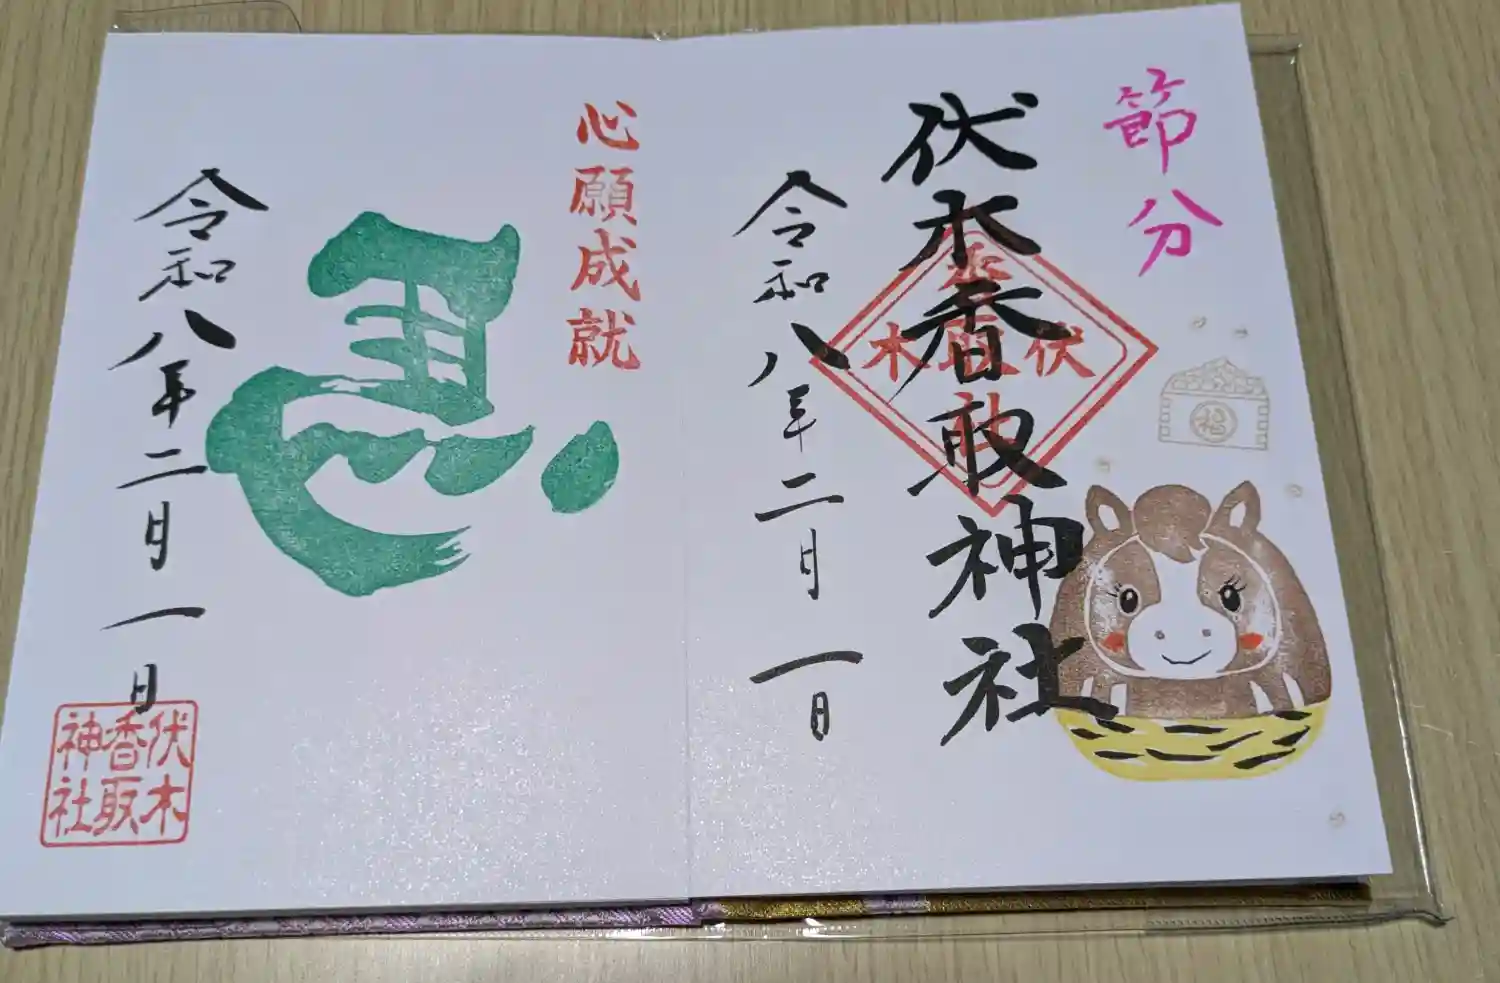 節分
福
伏木香取神社
令和八年二月一日
心願成就
令和八年二月一日
伏木
香取
神社